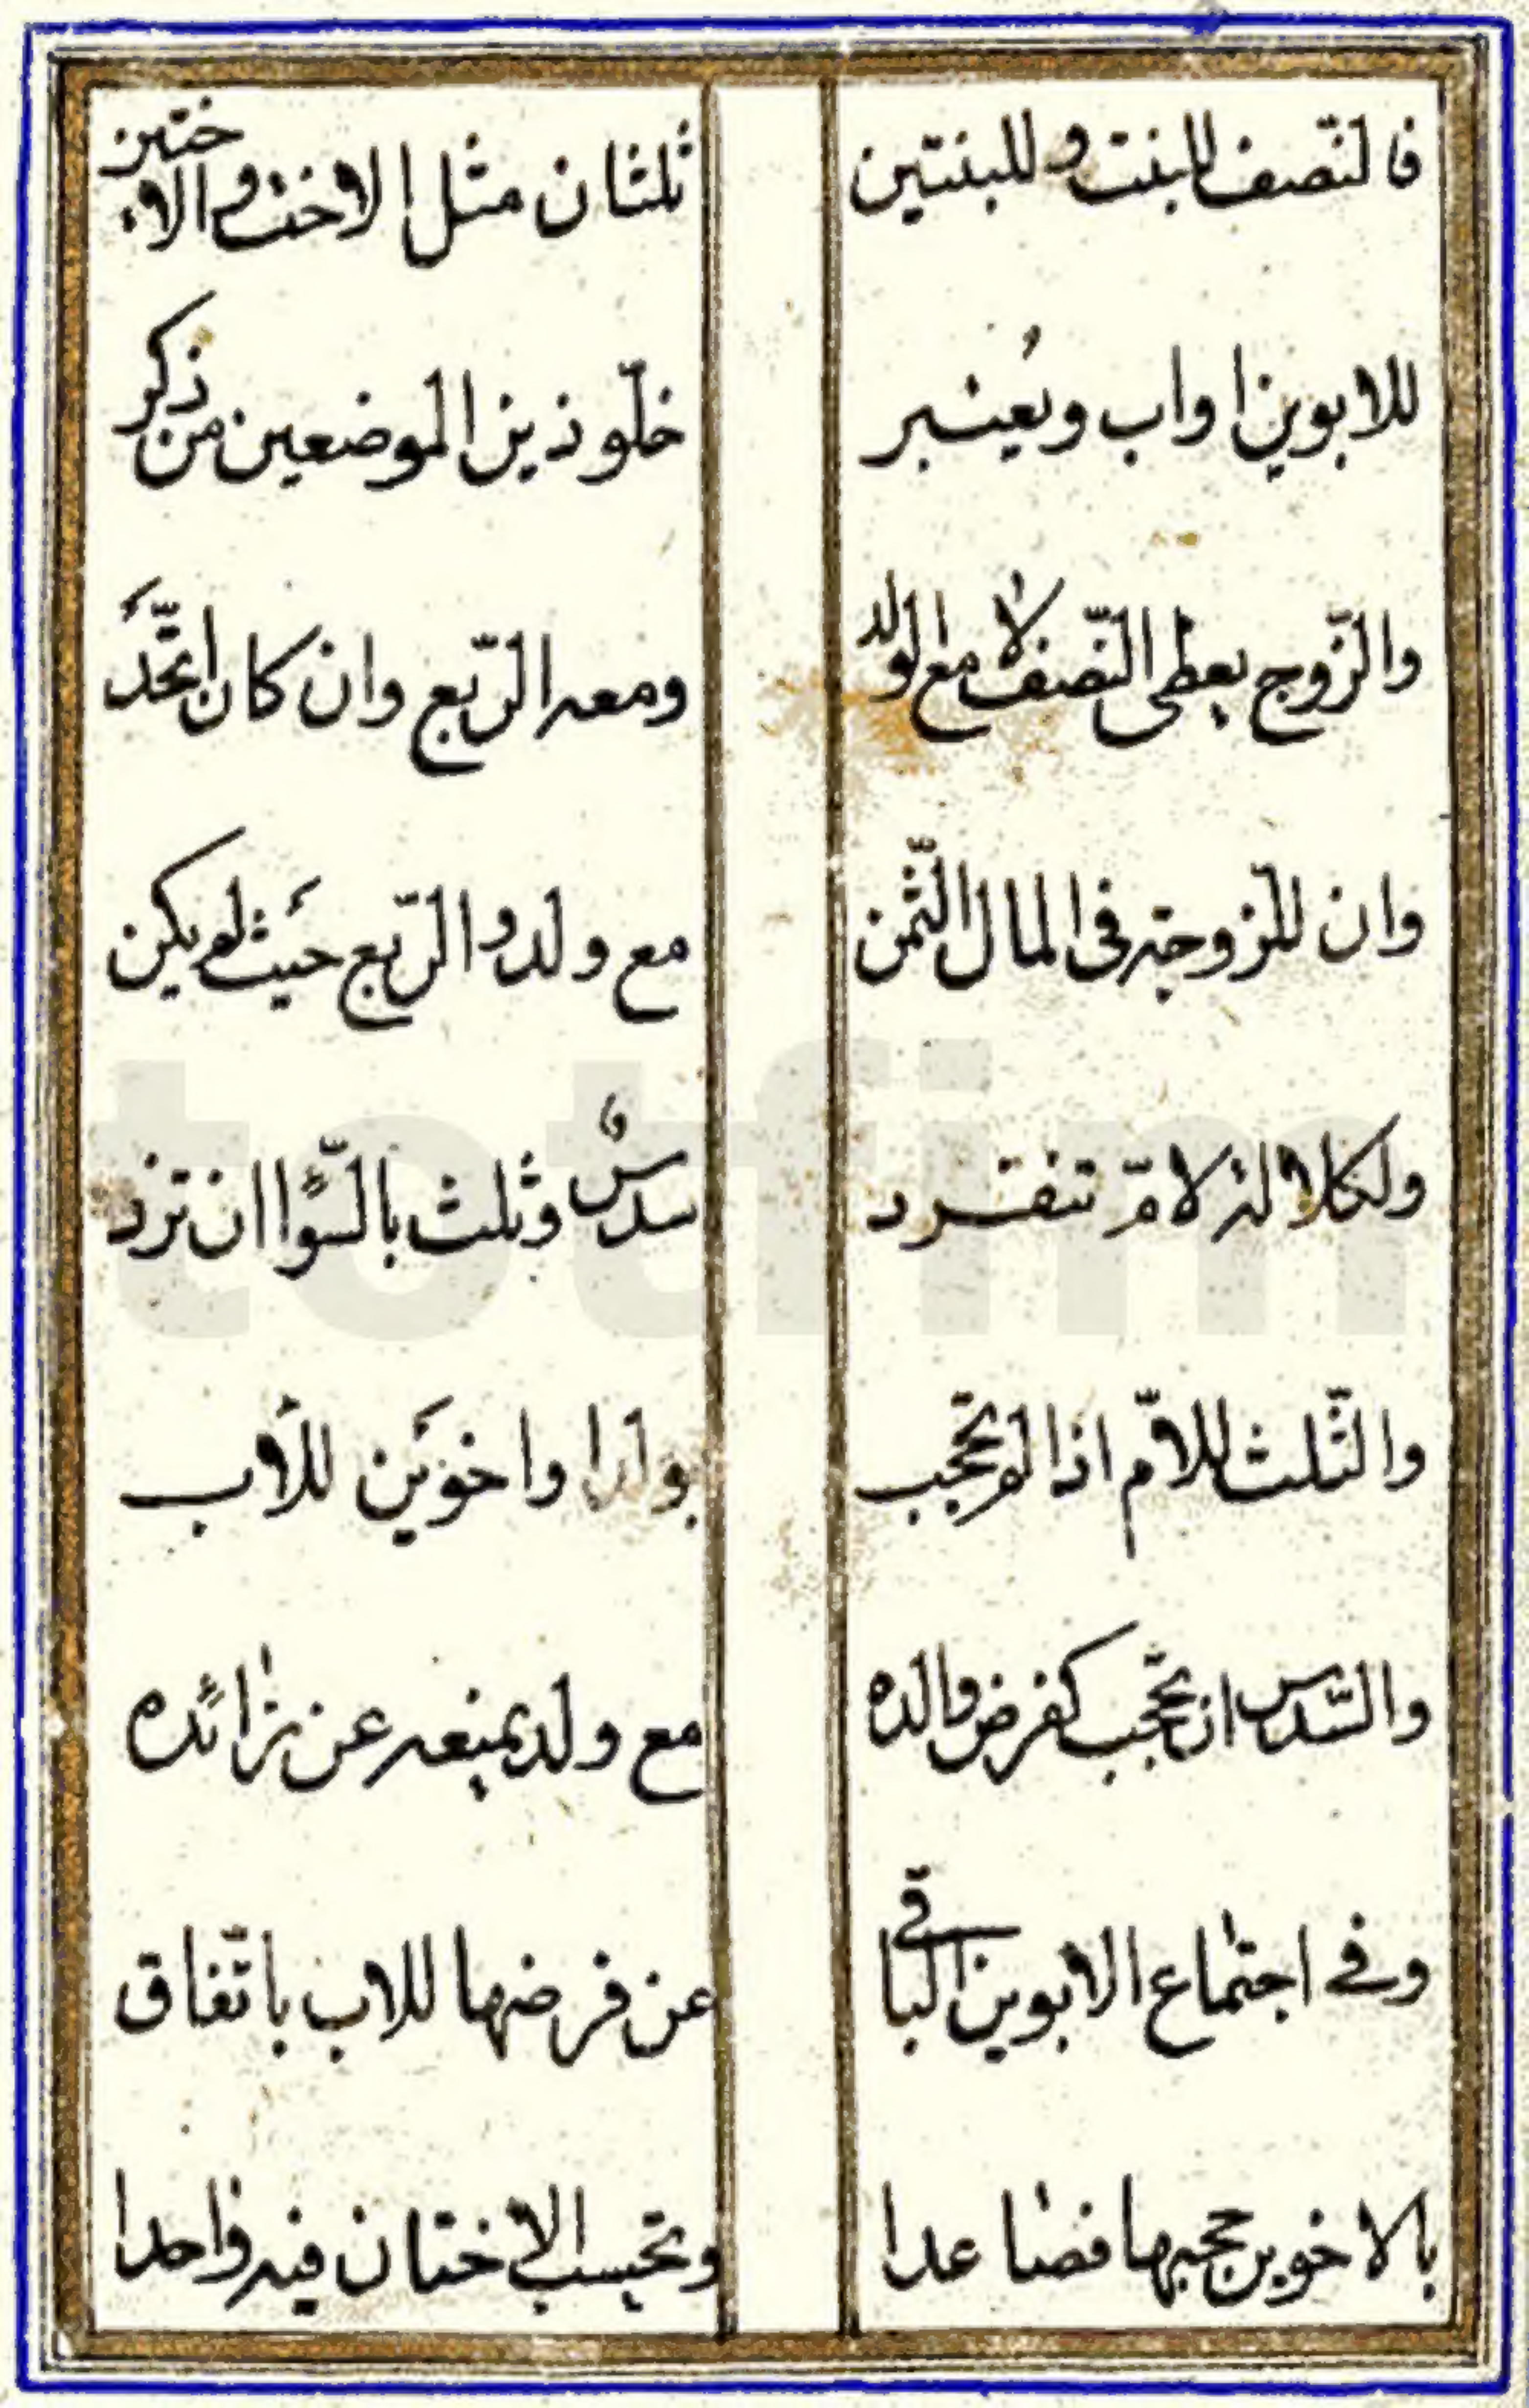 فالنّصف للبنت وللبنتين ثلثان مثل الاخت والاختين
للابوين او اب ويُعتبر خلّو ذين الموضعين من ذكر
والزّوج يعطى النّصف لا مع الولد ومعه الرّبع وان كان اتّحدَ
وان للزوجة فى المال الثّمن مع ولد والرّبع حيَث لم يكن
ولكلالة لامّ تنفرد سدسٌ وثلث بالسّوا ان تزد
والثّلث للامّ اذا لم تحجب بولد واخوَين للأب
والسّدس ان تحجب كفرض والده مع ولد يمنعه عن زائده
وفے اجتماع الابوين الباقى عن فرضها للاب باتّفاق
بالاخوين حجبها فصاعدا وتحسب الاختان فيه واحدا
totfim